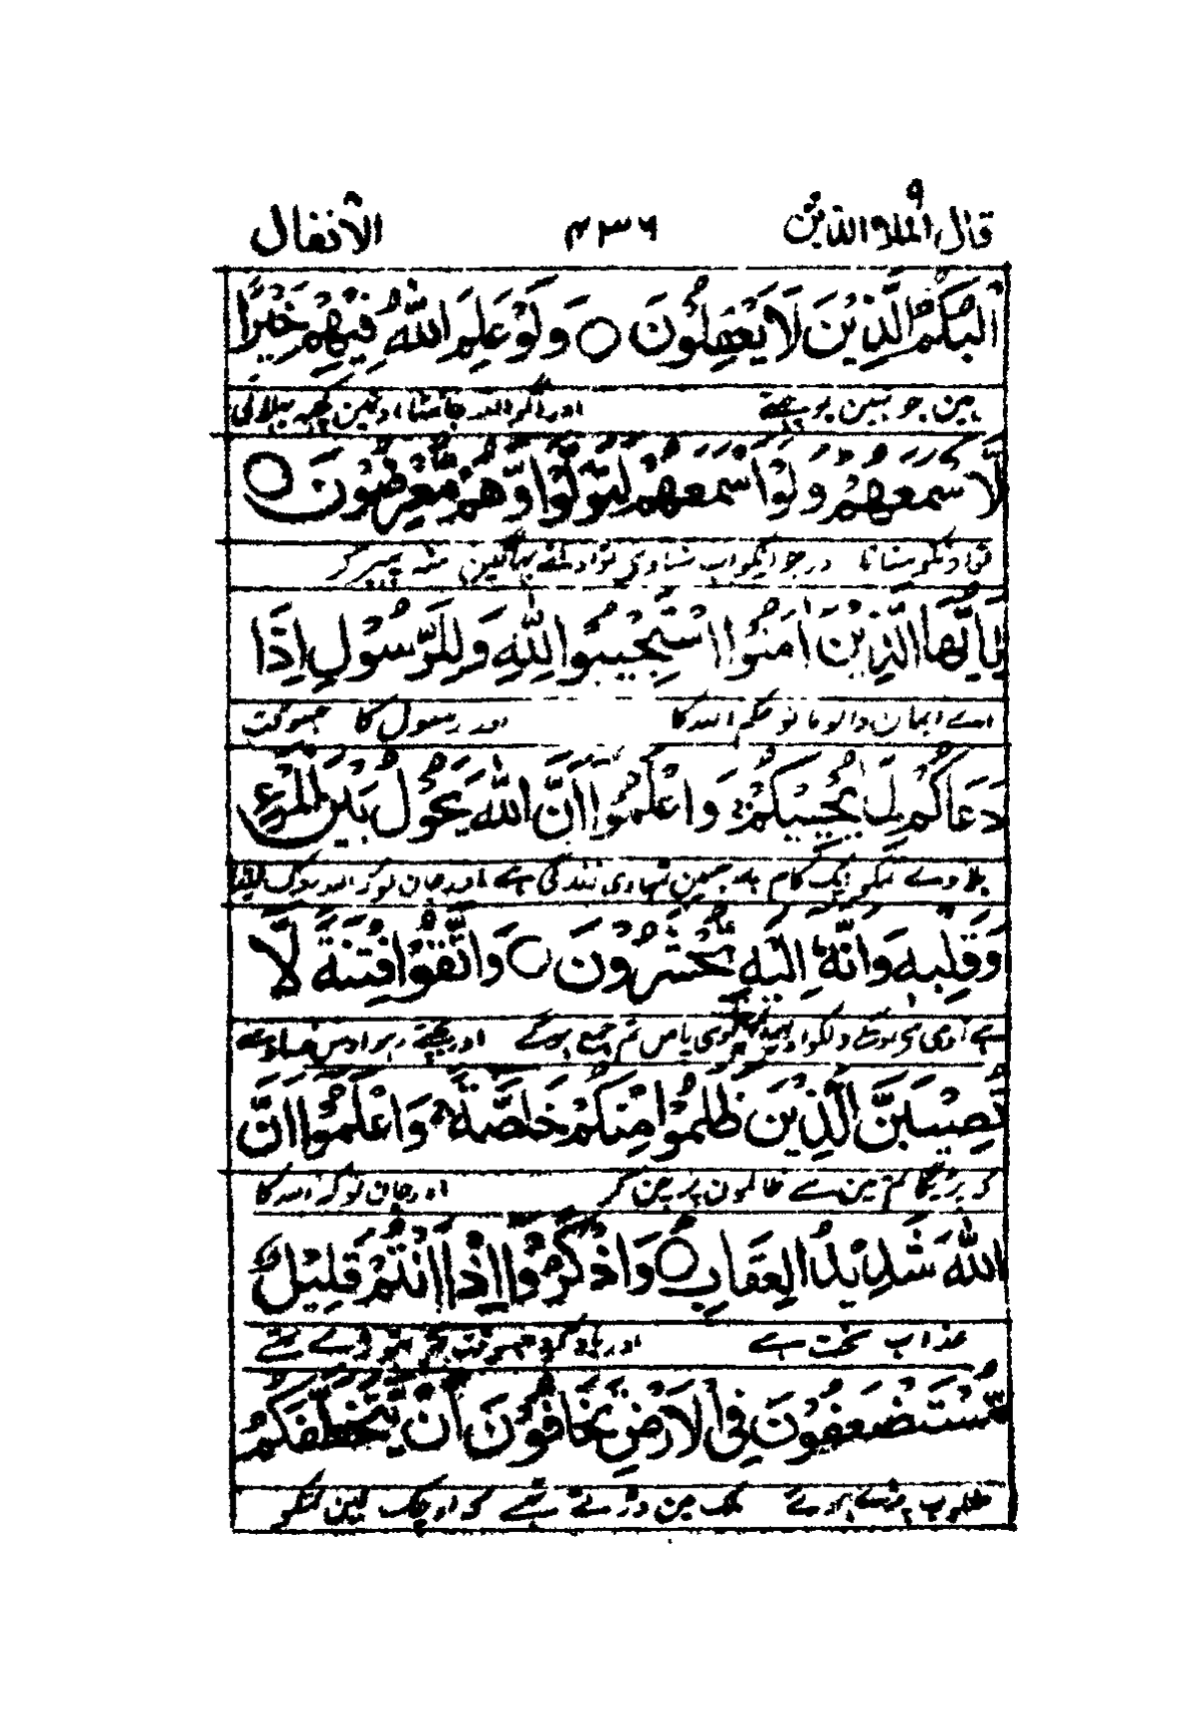 قال الملأ الذين ۹ ۴۳۶ الانفال
الْبُكْمُ الَّذِيْنَ لَا يَعْقِلُوْنَ ○ وَلَوْ عَلِمَ اللّٰهُ فِيْهِمْ خَيْرًا
ہین جو نہین بوجھتے اور اگر اللہ جانتا اونمین کچھ بھلائی
لَّاَسْمَعَهُمْ وَلَوْ اَسْمَعَهُمْ لَتَوَلَّوْا وَّهُمْ مُّعْرِضُوْنَ ○
تو اونکو سناتا اور جو انکو اب سنا دے تو اولٹے بھاگین منہ پھیر کر
يٰٓاَيُّهَا الَّذِيْنَ اٰمَنُوا اسْتَجِيْبُوْا لِلّٰهِ وَلِلرَّسُوْلِ اِذَا
اے ایمان والو مانو حکم اللہ کا اور رسول کا جسوقت
دَعَاكُمْ لِمَا يُحْيِيْكُمْ ۚ وَاعْلَمُوْٓا اَنَّ اللّٰهَ يَحُوْلُ بَيْنَ الْمَرْءِ
بلاوے تمکو ایک کام پر جسمین تمہاری زندگی ہے اور جان لو کہ اللہ روک لیتا
وَقَلْبِهٖ وَاَنَّهٗٓ اِلَيْهِ تُحْشَرُوْنَ ○ وَاتَّقُوْا فِتْنَةً لَّا
ہے آدمی سے اوسکے دلکو اور یہ کہ اوسی پاس تم جمع ہوگے اور بچتے رہو اوس فساد سے
تُصِيْبَنَّ الَّذِيْنَ ظَلَمُوْا مِنْكُمْ خَآصَّةً ۚ وَاعْلَمُوْٓا اَنَّ
کہ نہ پڑیگا تم مین سے ظالمون پر چن کر اور جان لو کہ اللہ کا
اللّٰهَ شَدِيْدُ الْعِقَابِ ○ وَاذْكُرُوْٓا اِذْ اَنْتُمْ قَلِيْلٌ
عذاب سخت ہے اور یاد کرو جسوقت تم تھوڑے تھے
مُّسْتَضْعَفُوْنَ فِى الْاَرْضِ تَخَافُوْنَ اَنْ يَّتَخَطَّفَكُمُ
مغلوب پڑے ہوئے ملک مین ڈرتے تھے کہ اوچک لین تمکو